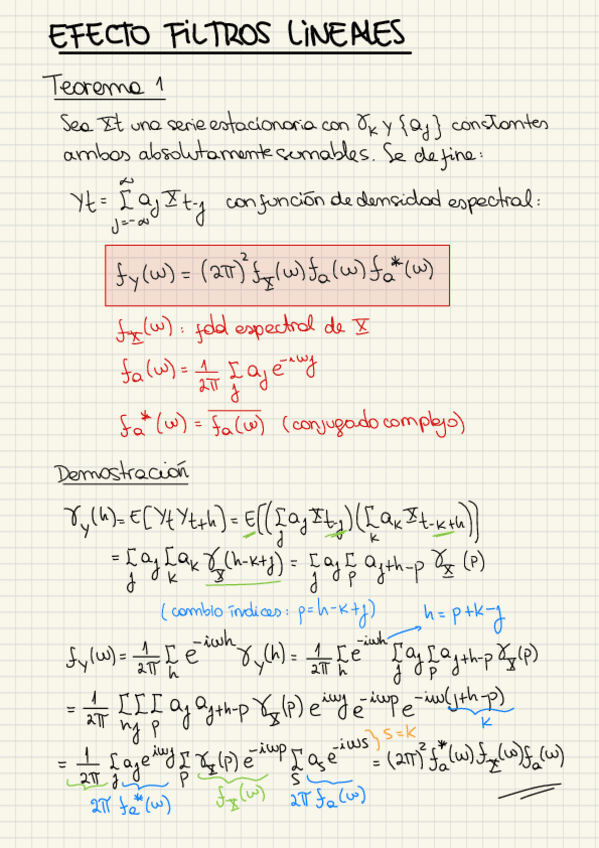 EFECTO FILTROS LINEALES
Teorema 1
Sea Xt una serie estacionaria con γk y {aj} constantes
ambas absolutamente sumables. Se define:
Yt = Σ_{j=-∞}^{∞} aj Xt-j con función de densidad espectral:
fy(ω) = (2π)² fX(ω) fa(ω) fa*(ω)
fX(ω) : fdd espectral de X
fa(ω) = 1/2π Σ_j aj e^{-iωj}
fa*(ω) = \overline{fa(ω)} (conjugado complejo)
Demostración
γy(h) = E[Yt Yt+h] = E[(Σ_j aj Xt-j)(Σ_k ak Xt-k+h)]
= Σ_j aj Σ_k ak γX(h-k+j) = Σ_j aj Σ_p aj+h-p γX(p)
(cambio índices: p=h-k+j) h = p+k-j
fy(ω) = 1/2π Σ_h e^{-iωh} γy(h) = 1/2π Σ_h e^{-iωh} Σ_j aj Σ_p aj+h-p γX(p)
= 1/2π Σ_h Σ_j Σ_p aj aj+h-p γX(p) e^{iωj} e^{-iωp} e^{-iω(j+h-p)}
k
= 1/2π Σ_j aj e^{iωj} Σ_p γX(p) e^{-iωp} Σ_s as e^{-iωs} } s=k = (2π)² fa*(ω) fX(ω) fa(ω)
2π fa*(ω) fX(ω) 2π fa(ω)